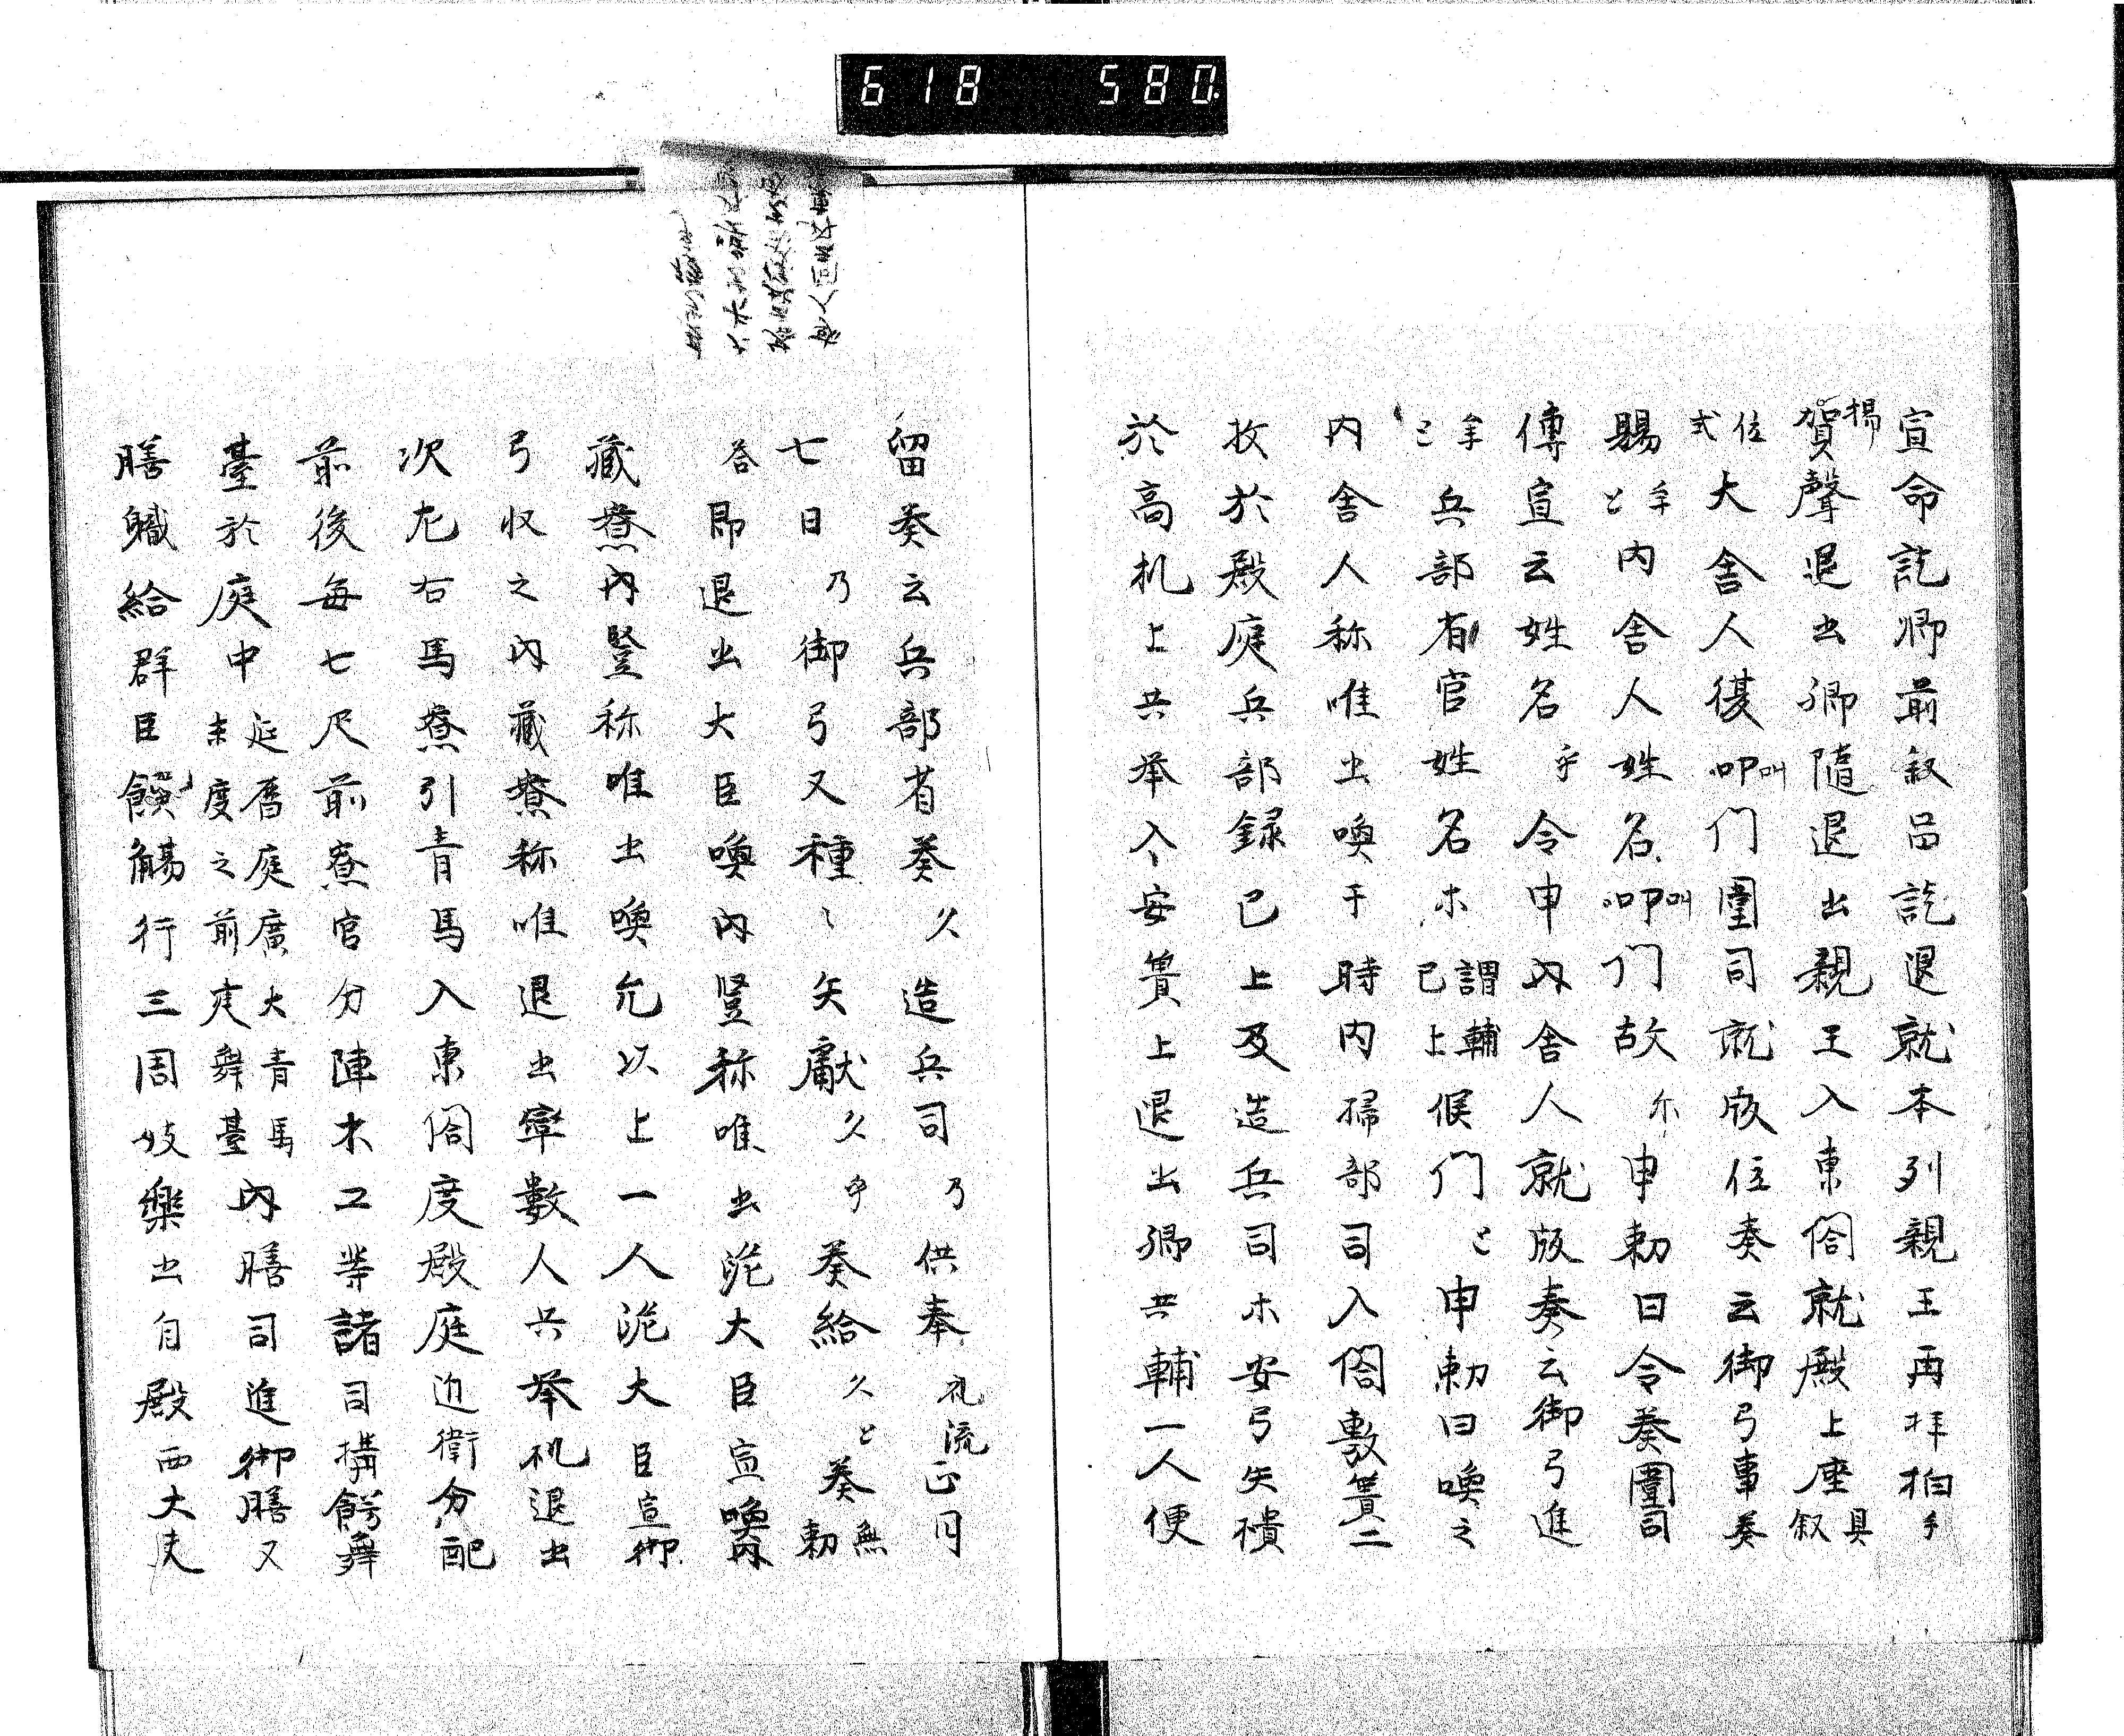 618 580
宣命訖卿前叙品訖退就本列親王再拝拍手
揚賀聲退出卿隨退出親王入東閤就殿上座具叙
位式大舎人復叫門闈司就版位奏云御弓事奏
賜牟止内舎人姓名叫門故尓申勅曰令奏闈司
傳宣云姓名乎令申内舎人就版奏云御弓進
牟止兵部省官姓名木謂輔已上候門止申勅曰喚之
内舎人称唯出喚于時内掃部司入閤敷簀二
枚於殿庭兵部録已上及造兵司木安弓矢樻
於高机上共举入安簀上退出卿共輔一人便
留奏云兵部省奏久造兵司乃供奉礼流正月
七日乃御弓又種〻矢獻久乎奏給久止奏無勅
答即退出大臣喚内豎称唯出跪大臣宣喚内
藏寮内豎称唯出喚允以上一人跪大臣宣御
弓収之内藏寮称唯退出率數人共举机退出
次左右馬寮引青馬入東閤度殿庭近衛分配
前後毎七尺前寮官分陣木工等諸司構餝舞
臺於庭中延暦庭廣大青馬未度之前建舞臺内膳司進御膳又
膳軄給群臣饌觴行三周妓樂出自殿西大夫